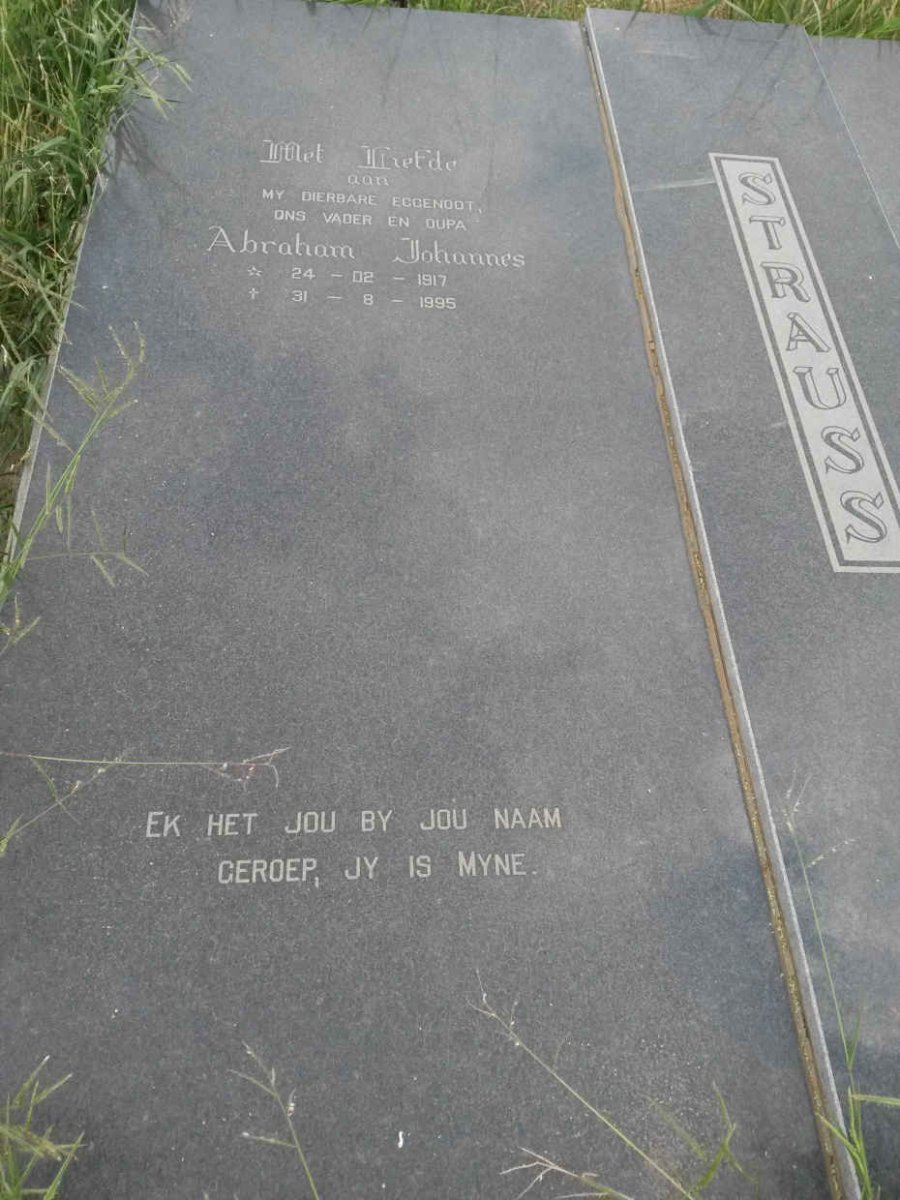 Met Liefde
aan
MY DIERBARE EGGENOOT,
ONS VADER EN OUPA
Abraham Johannes
☆ 24 - 02 - 1917
† 31 - 8 - 1995
STRAUSS
EK HET JOU BY JOU NAAM
GEROEP, JY IS MYNE.